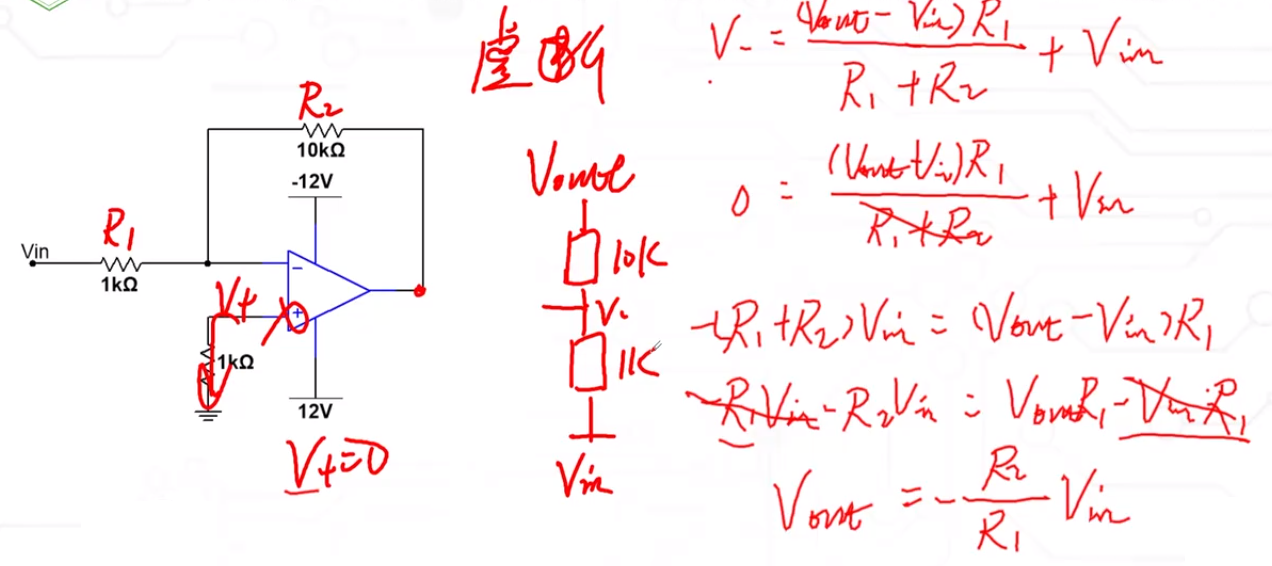 虚断
R₂
10kΩ
-12V
R₁
Vin
1kΩ
V+
1kΩ
12V
V+=0
Vout
10K
V-
1K
Vin
V- = (Vout - Vin)R₁ / R₁+R₂ + Vin
0 = (Vout-Vin)R₁ / R₁+R₂ + Vin
-(R₁+R₂)Vin = (Vout-Vin)R₁
-R₁Vin-R₂Vin = VoutR₁-VinR₁
Vout = - R₂ / R₁ Vin